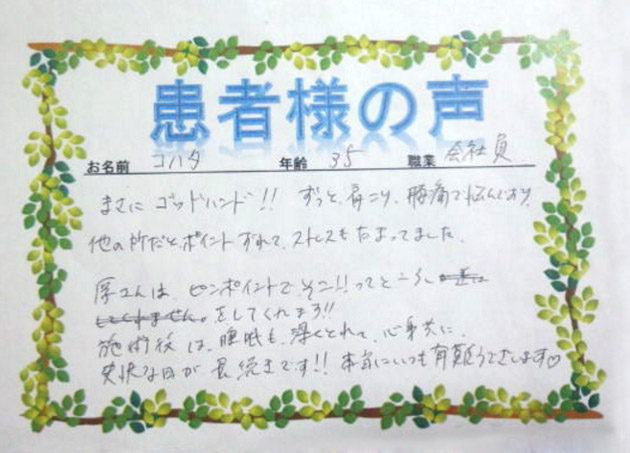 患者様の声
お名前 コハタ 年齢 35 職業 会社員
まさに ゴッドハンド!! ずっと、肩こり、腰痛で悩んでおり、
他の所だと、ポイントずれて、ストレスもたまってました。
さんは、ピンポイントで、そこ!!ってところ
をしてくれます!!
施術後は、睡眠も、深くとれて、心身共に、
爽快な日が長続きです!! 本当にいつも有難うございます♡